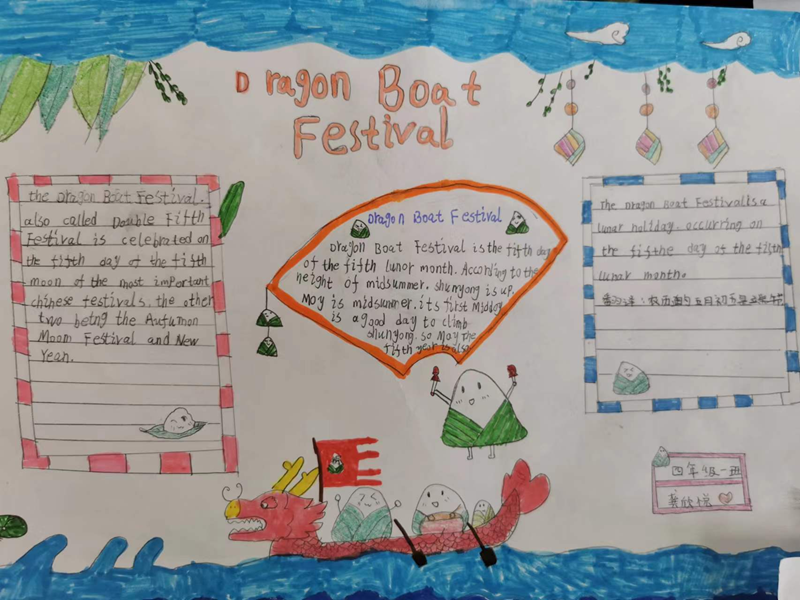 Dragon Boat
Festival
the Dragon Boat Festival.
also called Double Fifth
Festival is celebrated on
the fifth day of the fifth
moon of the most important
chinese festivals, the other
two being the Autumon
Moom Festival and New
Year.
Dragon Boat Festival
Dragon Boat Festival is the fifth day
of the fifth lunor month. According to the
height of midsummer. shunyong is up.
May is midsunmer. its first Midday
is a good day to climb
shunyong. so May the
fifth year is also
The Dragon Boat Festivalls a
lunar holiday. occurring on
the fifthe day of the fifth
lunar month.
农历的五月初五是
四年级一班
欣